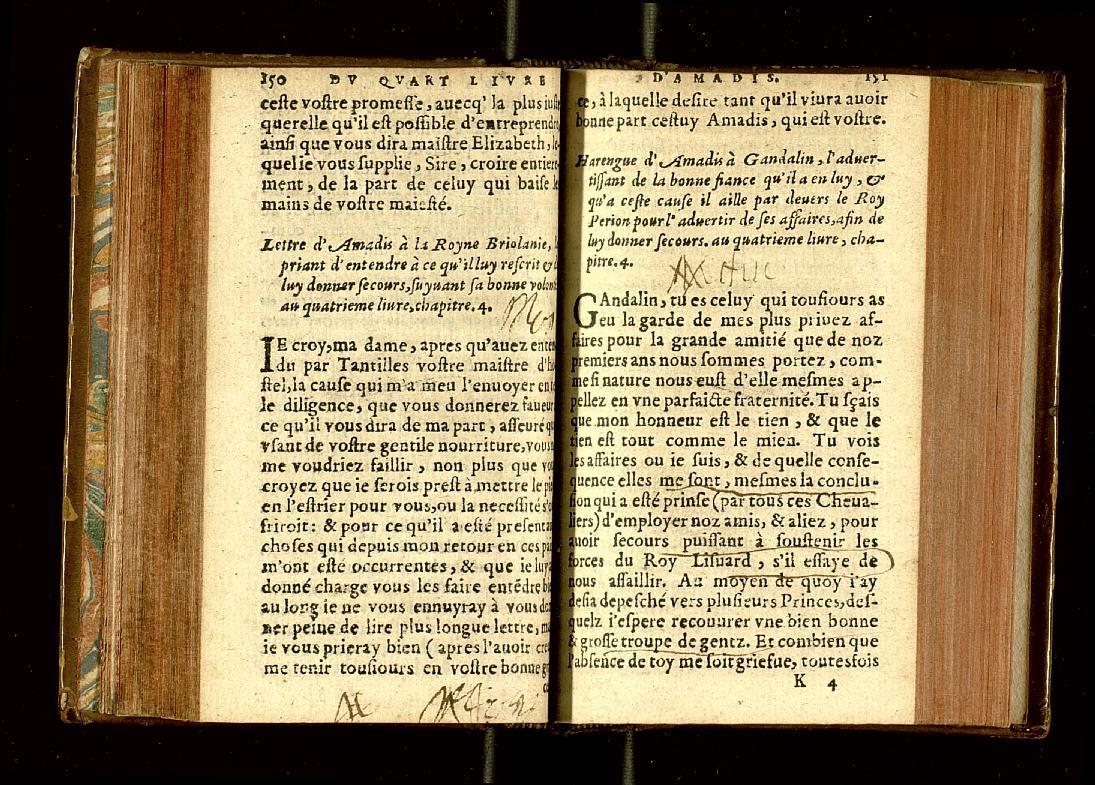 150 DV QVART LIVRE
ceste vostre promesse, auecq' la plus
querelle qu'il est possible d'entreprendre
ainsi que vous dira maistre Elizabeth,
quel ie vous supplie, Sire, croire entiere-
ment, de la part de celuy qui baise
mains de vostre maiesté.
Lettre d'Amadis à la Royne Briolanie,
priant d'entendre à ce qu'il luy rescrit &
luy donner secours, suyuant sa bonne
au quatrieme liure, chapitre. 4.
IE croy, ma dame, apres qu'auez
du par Tantilles vostre maistre
stel, la cause qui m'a meu l'enuoyer
le diligence, que vous donnerez faueur
ce qu'il vous dira de ma part, asseuré
vsant de vostre gentile nourriture,
me voudriez faillir, non plus que
croyez que ie serois prest à mettre le
en l'estrier pour vous, ou la necessité
friroit: & pour ce qu'il a esté
choses qui depuis mon retour en ces
m'ont esté occurrentes, & que ie luy
donné charge vous les faire entēdre
au long ie ne vous ennuyray à vous
ner peine de lire plus longue lettre,
ie vous prieray bien (apres l'auoir
me tenir tousiours en vostre bonne
D'AMADIS. 151
ce, à laquelle desire tant qu'il viura auoir
bonne part cestuy Amadis, qui est vostre.
Harengue d'Amadis à Gandalin, l'aduer-
tissant de la bonne fiance qu'il a en luy, &
qu'a ceste cause il aille par deuers le Roy
Perion pour l'aduertir de ses affaires, afin de
luy donner secours. au quatrieme liure, cha-
pitre. 4.
GAndalin, tu es celuy qui tousiours as
eu la garde de mes plus priuez af-
faires pour la grande amitié que de noz
premiers ans nous sommes portez, com-
me si nature nous eust d'elle mesmes ap-
pellez en vne parfaicte fraternité. Tu sçais
que mon honneur est le tien, & que le
tien est tout comme le mien. Tu vois
les affaires ou ie suis, & de quelle conse-
quence elles me sont, mesmes la conclu-
sion qui a esté prinse (par tous ces Cheua-
liers) d'employer noz amis, & aliez, pour
auoir secours puissant à soustenir les
forces du Roy Lisuard, s'il essaye de
nous assaillir. Au moyen de quoy i'ay
desia depesché vers plusieurs Princes, des-
quelz i'espere recouurer vne bien bonne
& grosse troupe de gentz. Et combien que
l'absence de toy me soit griefue, toutesfois
K 4